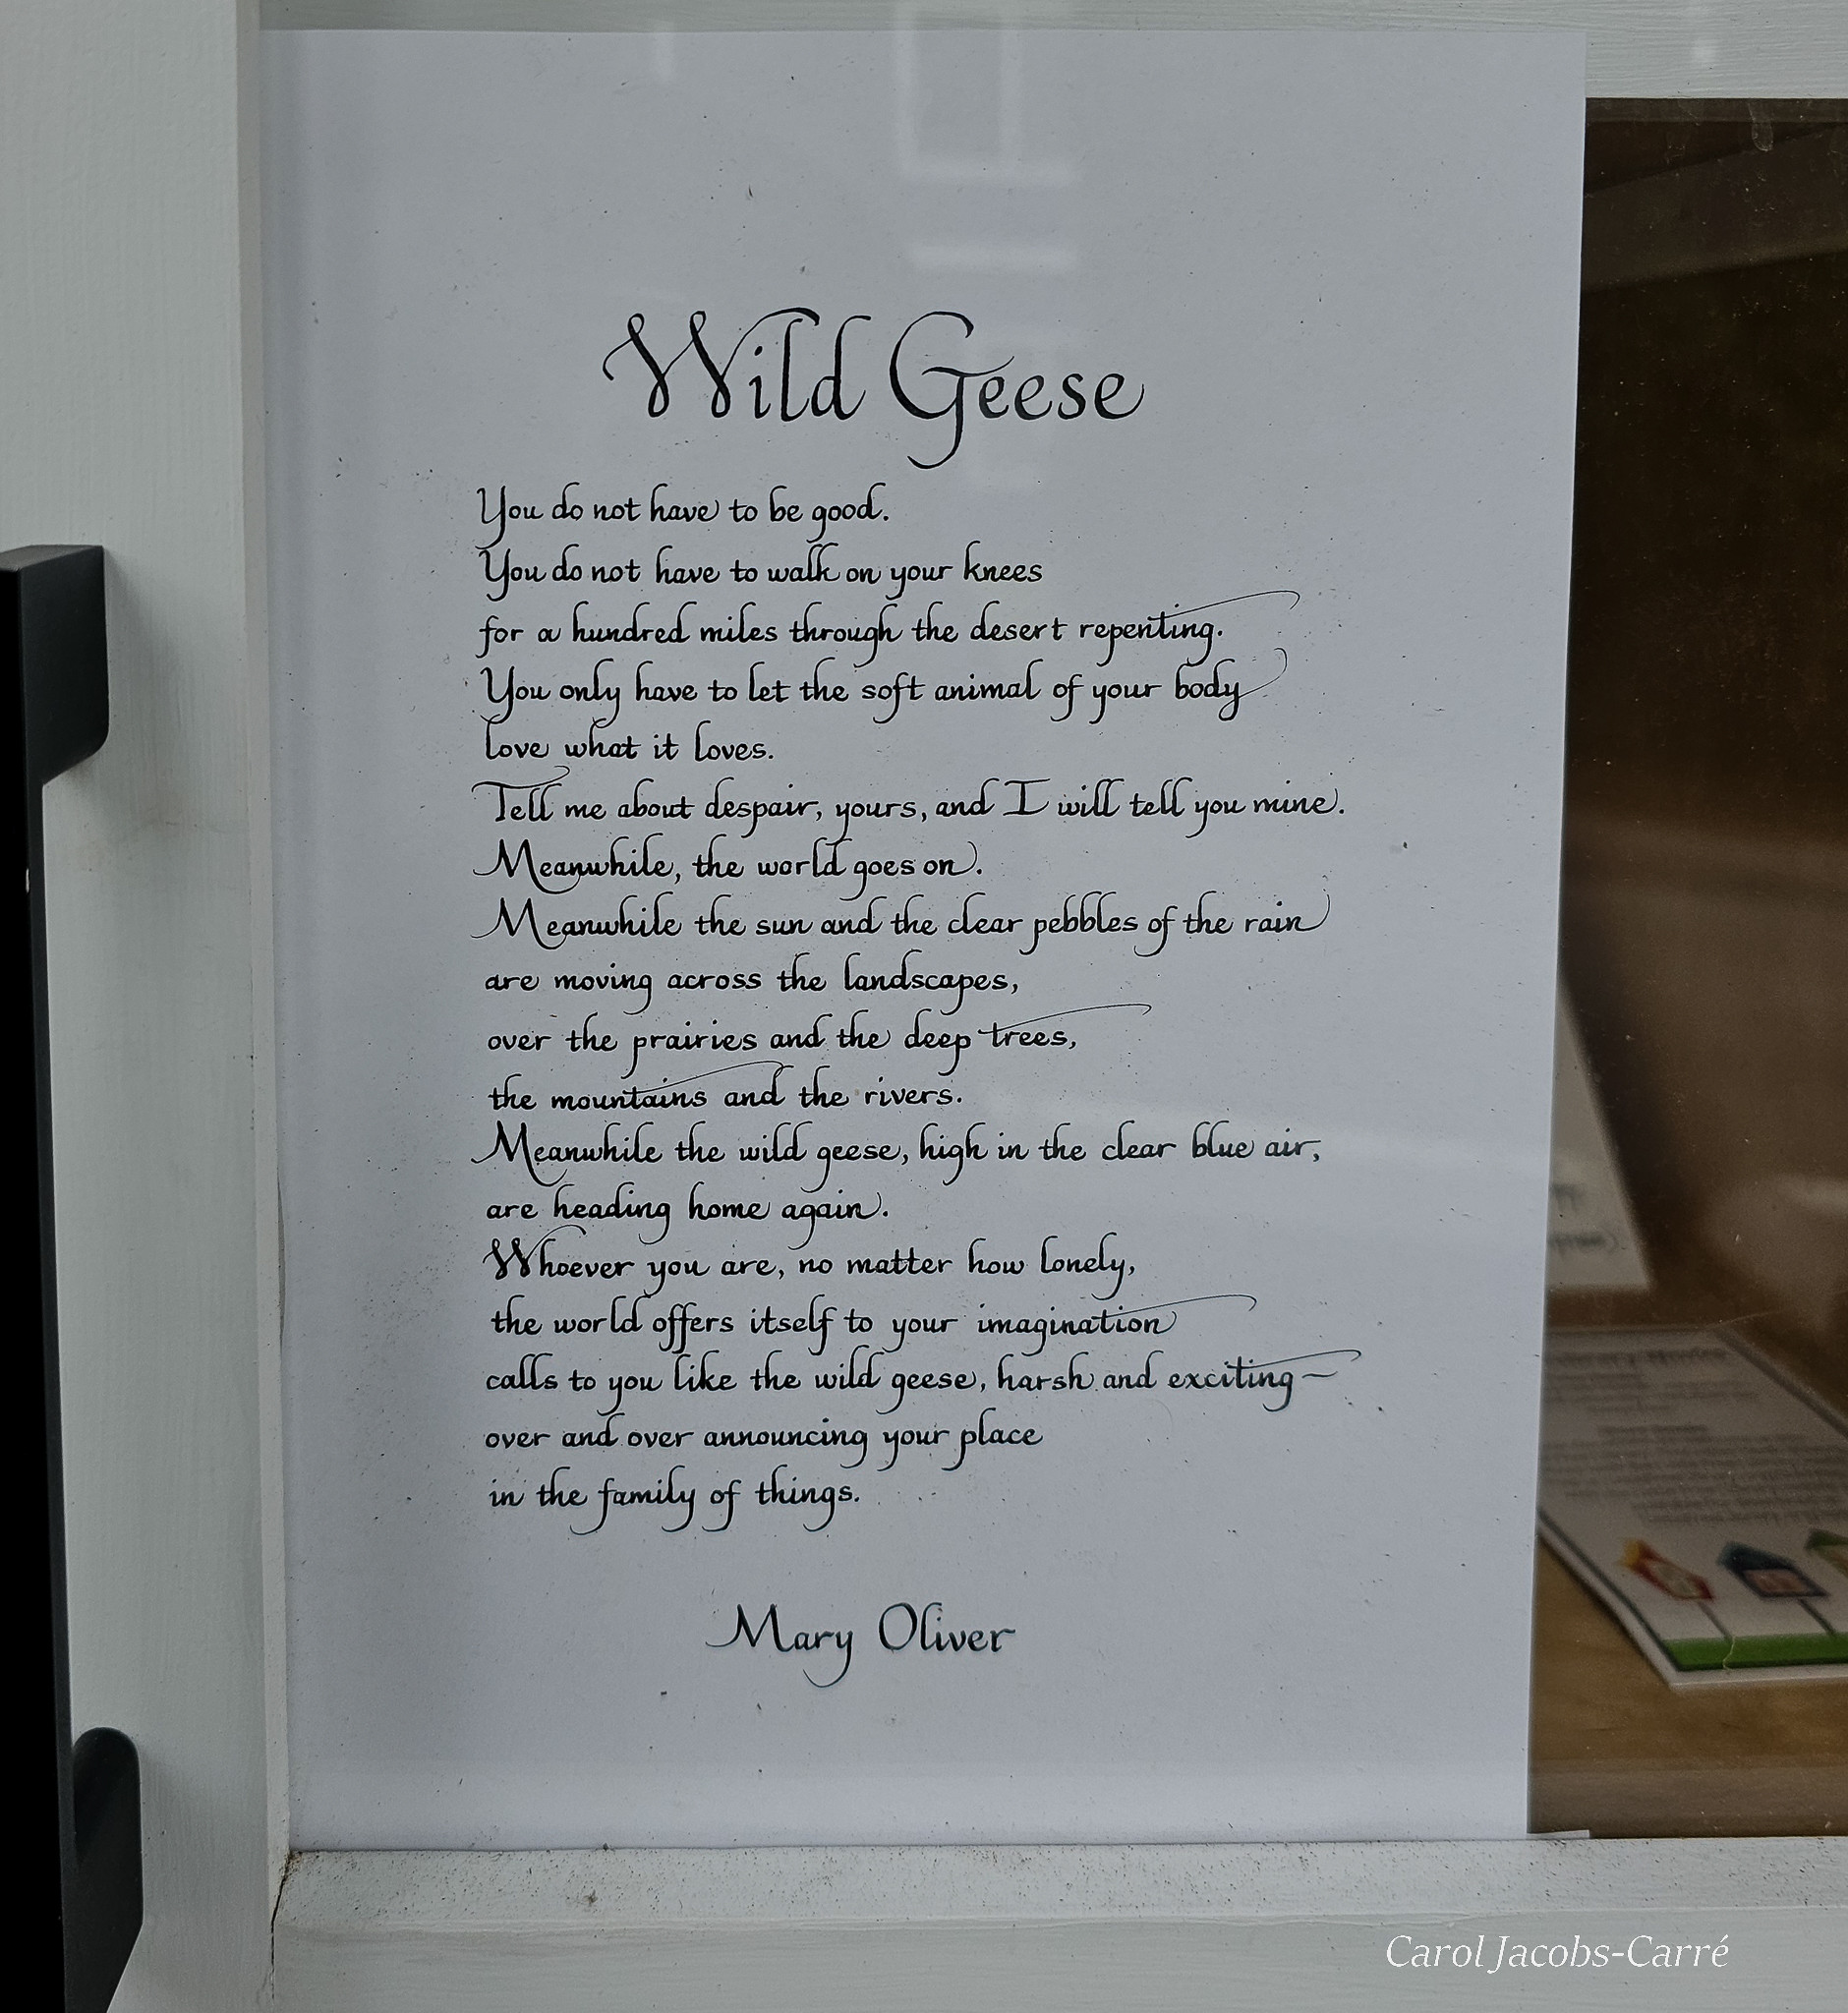 Wild Geese
You do not have to be good.
You do not have to walk on your knees
for a hundred miles through the desert repenting.
You only have to let the soft animal of your body
love what it loves.
Tell me about despair, yours, and I will tell you mine.
Meanwhile, the world goes on.
Meanwhile the sun and the clear pebbles of the rain
are moving across the landscapes,
over the prairies and the deep trees,
the mountains and the rivers.
Meanwhile the wild geese, high in the clear blue air,
are heading home again.
Whoever you are, no matter how lonely,
the world offers itself to your imagination
calls to you like the wild geese, harsh and exciting—
over and over announcing your place
in the family of things.
Mary Oliver
Carol Jacobs-Carré